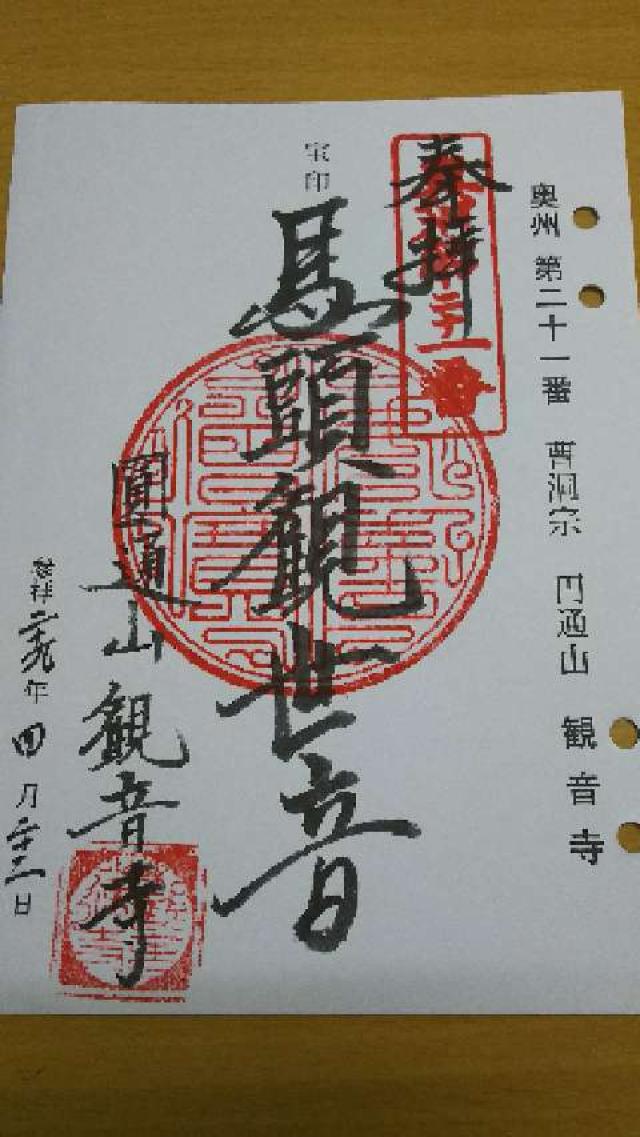 奥州 第二十一番 曹洞宗 円通山 観音寺
奉拝
宝印
馬頭観世音
圓通山 観音寺
二十九年 四月二十二日